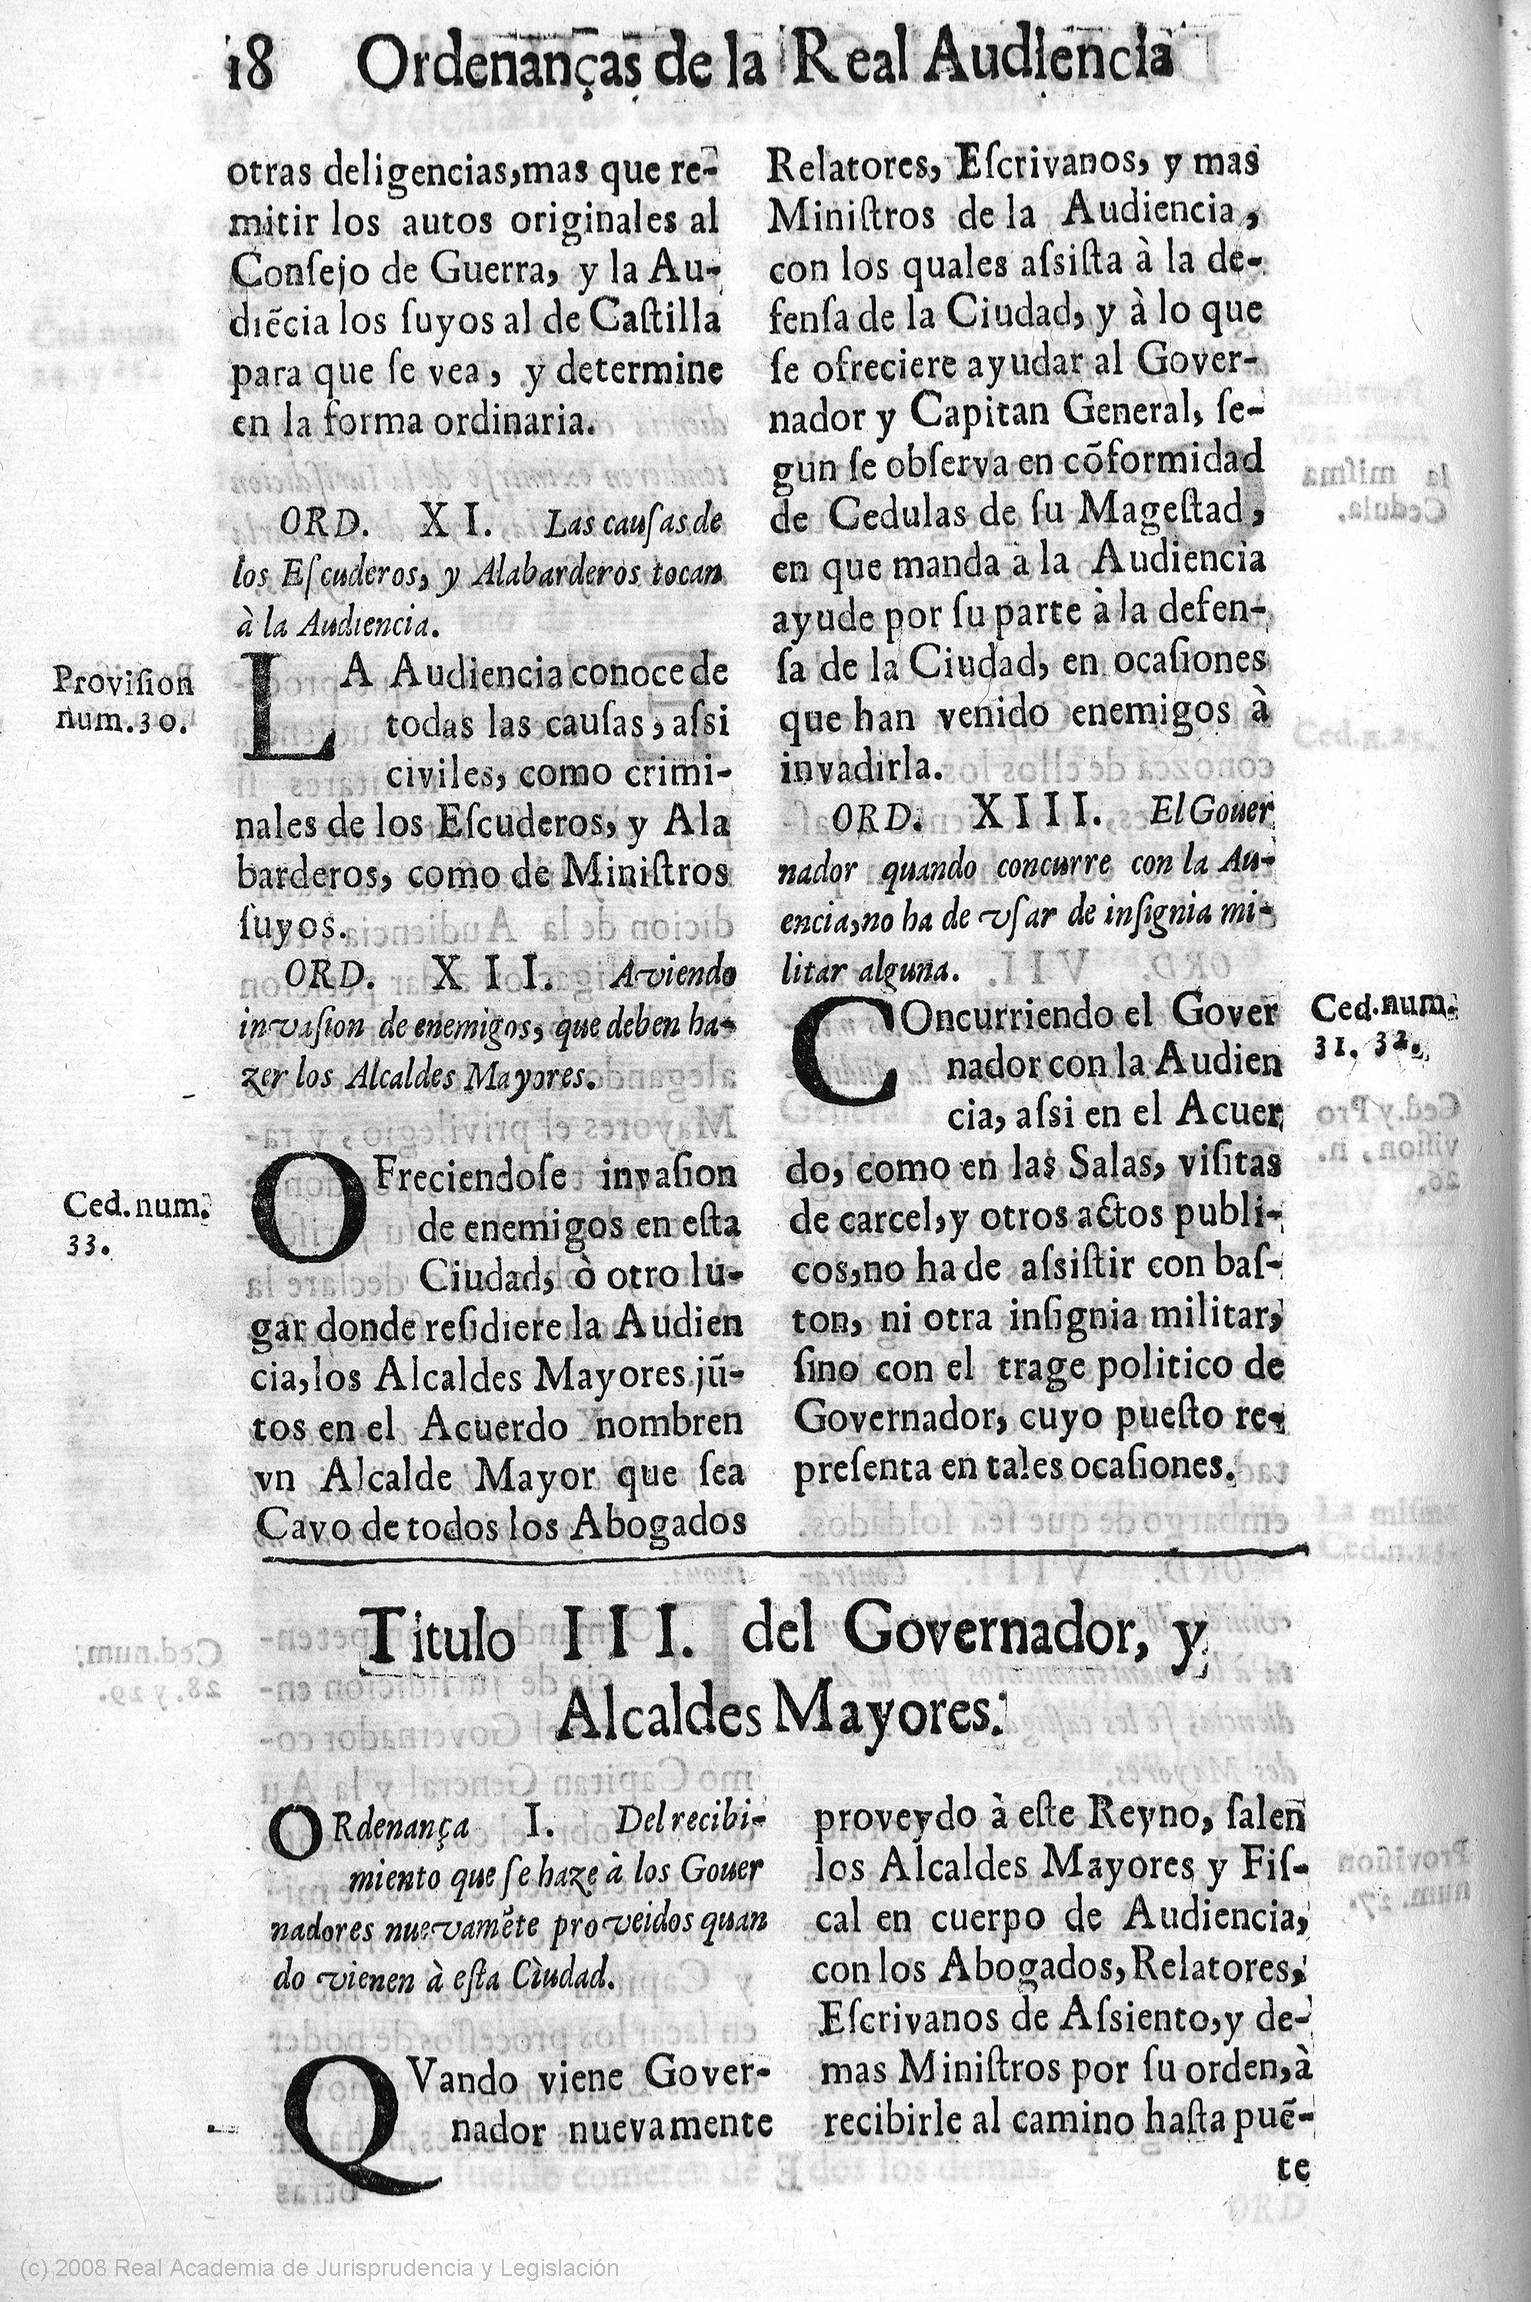 18 Ordenanças de la Real Audiencia
otras deligencias,mas que re-
mitir los autos originales al
Conſejo de Guerra, y la Au-
diẽcia los ſuyos al de Caſtilla
para que ſe vea, y determine
en la forma ordinaria.
ORD. XI. Las cauſas de
los Eſcuderos, y Alabarderos tocan
à la Audiencia.
Proviſion
num.30.
LA Audiencia conoce de
todas las cauſas, aſsi
civiles, como crimi-
nales de los Eſcuderos, y Ala
barderos, como de Miniſtros
ſuyos.
ORD. XII. Aviendo
invaſion de enemigos, que deben ha-
zer los Alcaldes Mayores.
Ced.num.
33.
OFreciendoſe invaſion
de enemigos en eſta
Ciudad, ò otro lu-
gar donde reſidiere la Audien
cia,los Alcaldes Mayores jũ-
tos en el Acuerdo nombren
vn Alcalde Mayor que ſea
Cavo de todos los Abogados
Relatores, Eſcrivanos, y mas
Miniſtros de la Audiencia,
con los quales aſsiſta à la de-
fenſa de la Ciudad, y à lo que
ſe ofreciere ayudar al Gover-
nador y Capitan General, ſe-
gun ſe obſerva en cõformidad
de Cedulas de ſu Mageſtad,
en que manda à la Audiencia
ayude por ſu parte à la defen-
ſa de la Ciudad, en ocaſiones
que han venido enemigos à
invadirla.
ORD. XIII. El Gouer
nador quando concurre con la Au-
encia,no ha de vſar de inſignia mi-
litar alguna.
COncurriendo el Gover
nador con la Audien
cia, aſsi en el Acuer
do, como en las Salas, viſitas
de carcel,y otros actos publi-
cos,no ha de aſsiſtir con baſ-
ton, ni otra inſignia militar,
ſino con el trage politico de
Governador, cuyo pueſto re-
preſenta en tales ocaſiones.
Ced.num.
31. 32.
Titulo III. del Governador, y
Alcaldes Mayores.
ORdenança I. Del recibi-
miento que ſe haze à los Gouer
nadores nuevamẽte proveidos quan
do vienen à eſta Ciudad.
QVando viene Gover-
nador nuevamente
proveydo à eſte Reyno, ſalen
los Alcaldes Mayores y Fiſ-
cal en cuerpo de Audiencia,
con los Abogados,Relatores,
Eſcrivanos de Aſsiento,y de-
mas Miniſtros por ſu orden,à
recibirle al camino haſta puẽ-
te
(c) 2008 Real Academia de Jurisprudencia y Legislación